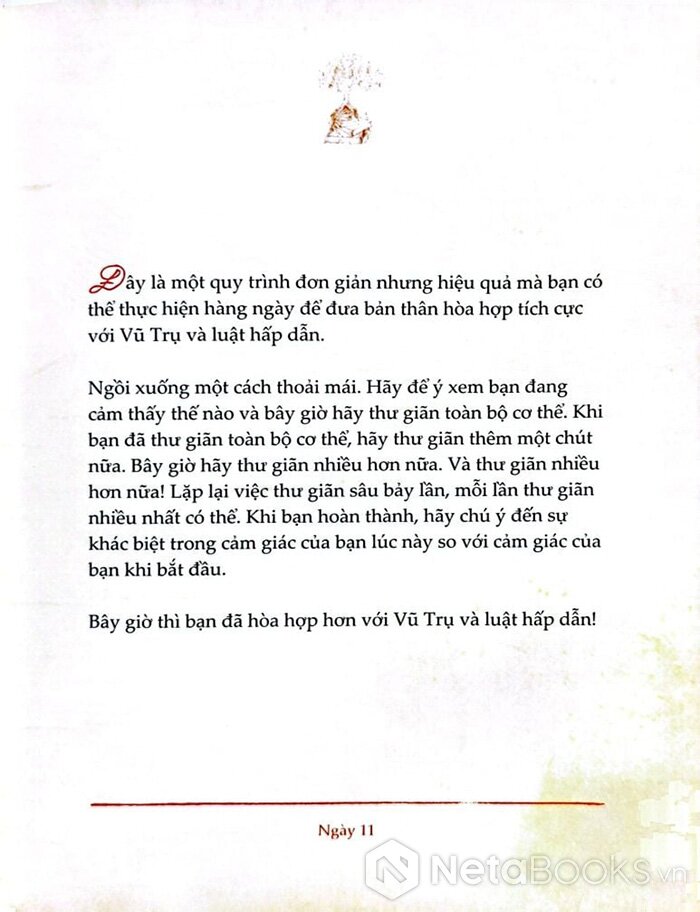 Đây là một quy trình đơn giản nhưng hiệu quả mà bạn có
thể thực hiện hàng ngày để đưa bản thân hòa hợp tích cực
với Vũ Trụ và luật hấp dẫn.
Ngồi xuống một cách thoải mái. Hãy để ý xem bạn đang
cảm thấy thế nào và bây giờ hãy thư giãn toàn bộ cơ thể. Khi
bạn đã thư giãn toàn bộ cơ thể, hãy thư giãn thêm một chút
nữa. Bây giờ hãy thư giãn nhiều hơn nữa. Và thư giãn nhiều
hơn nữa! Lặp lại việc thư giãn sâu bảy lần, mỗi lần thư giãn
nhiều nhất có thể. Khi bạn hoàn thành, hãy chú ý đến sự
khác biệt trong cảm giác của bạn lúc này so với cảm giác của
bạn khi bắt đầu.
Bây giờ thì bạn đã hòa hợp hơn với Vũ Trụ và luật hấp dẫn!
Ngày 11
NetaBooks.vn